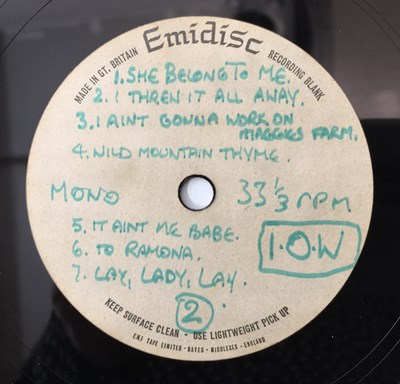 Emidisc
MADE IN GT. BRITAIN
RECORDING BLANK
1. SHE BELONG TO ME.
2. I THREN IT ALL AWAY.
3. I AINT GONNA WORK ON
MAGGIES FARM.
4. WILD MOUNTAIN THYME.
MONO
33 1/3 RPM
5. IT AINT ME BABE.
6. TO RAMONA.
7. LAY, LADY, LAY.
I.O.W
2
KEEP SURFACE CLEAN - USE LIGHTWEIGHT PICK UP
E.M.I TAPE LIMITED · HAYES · MIDDLESEX · ENGLAND